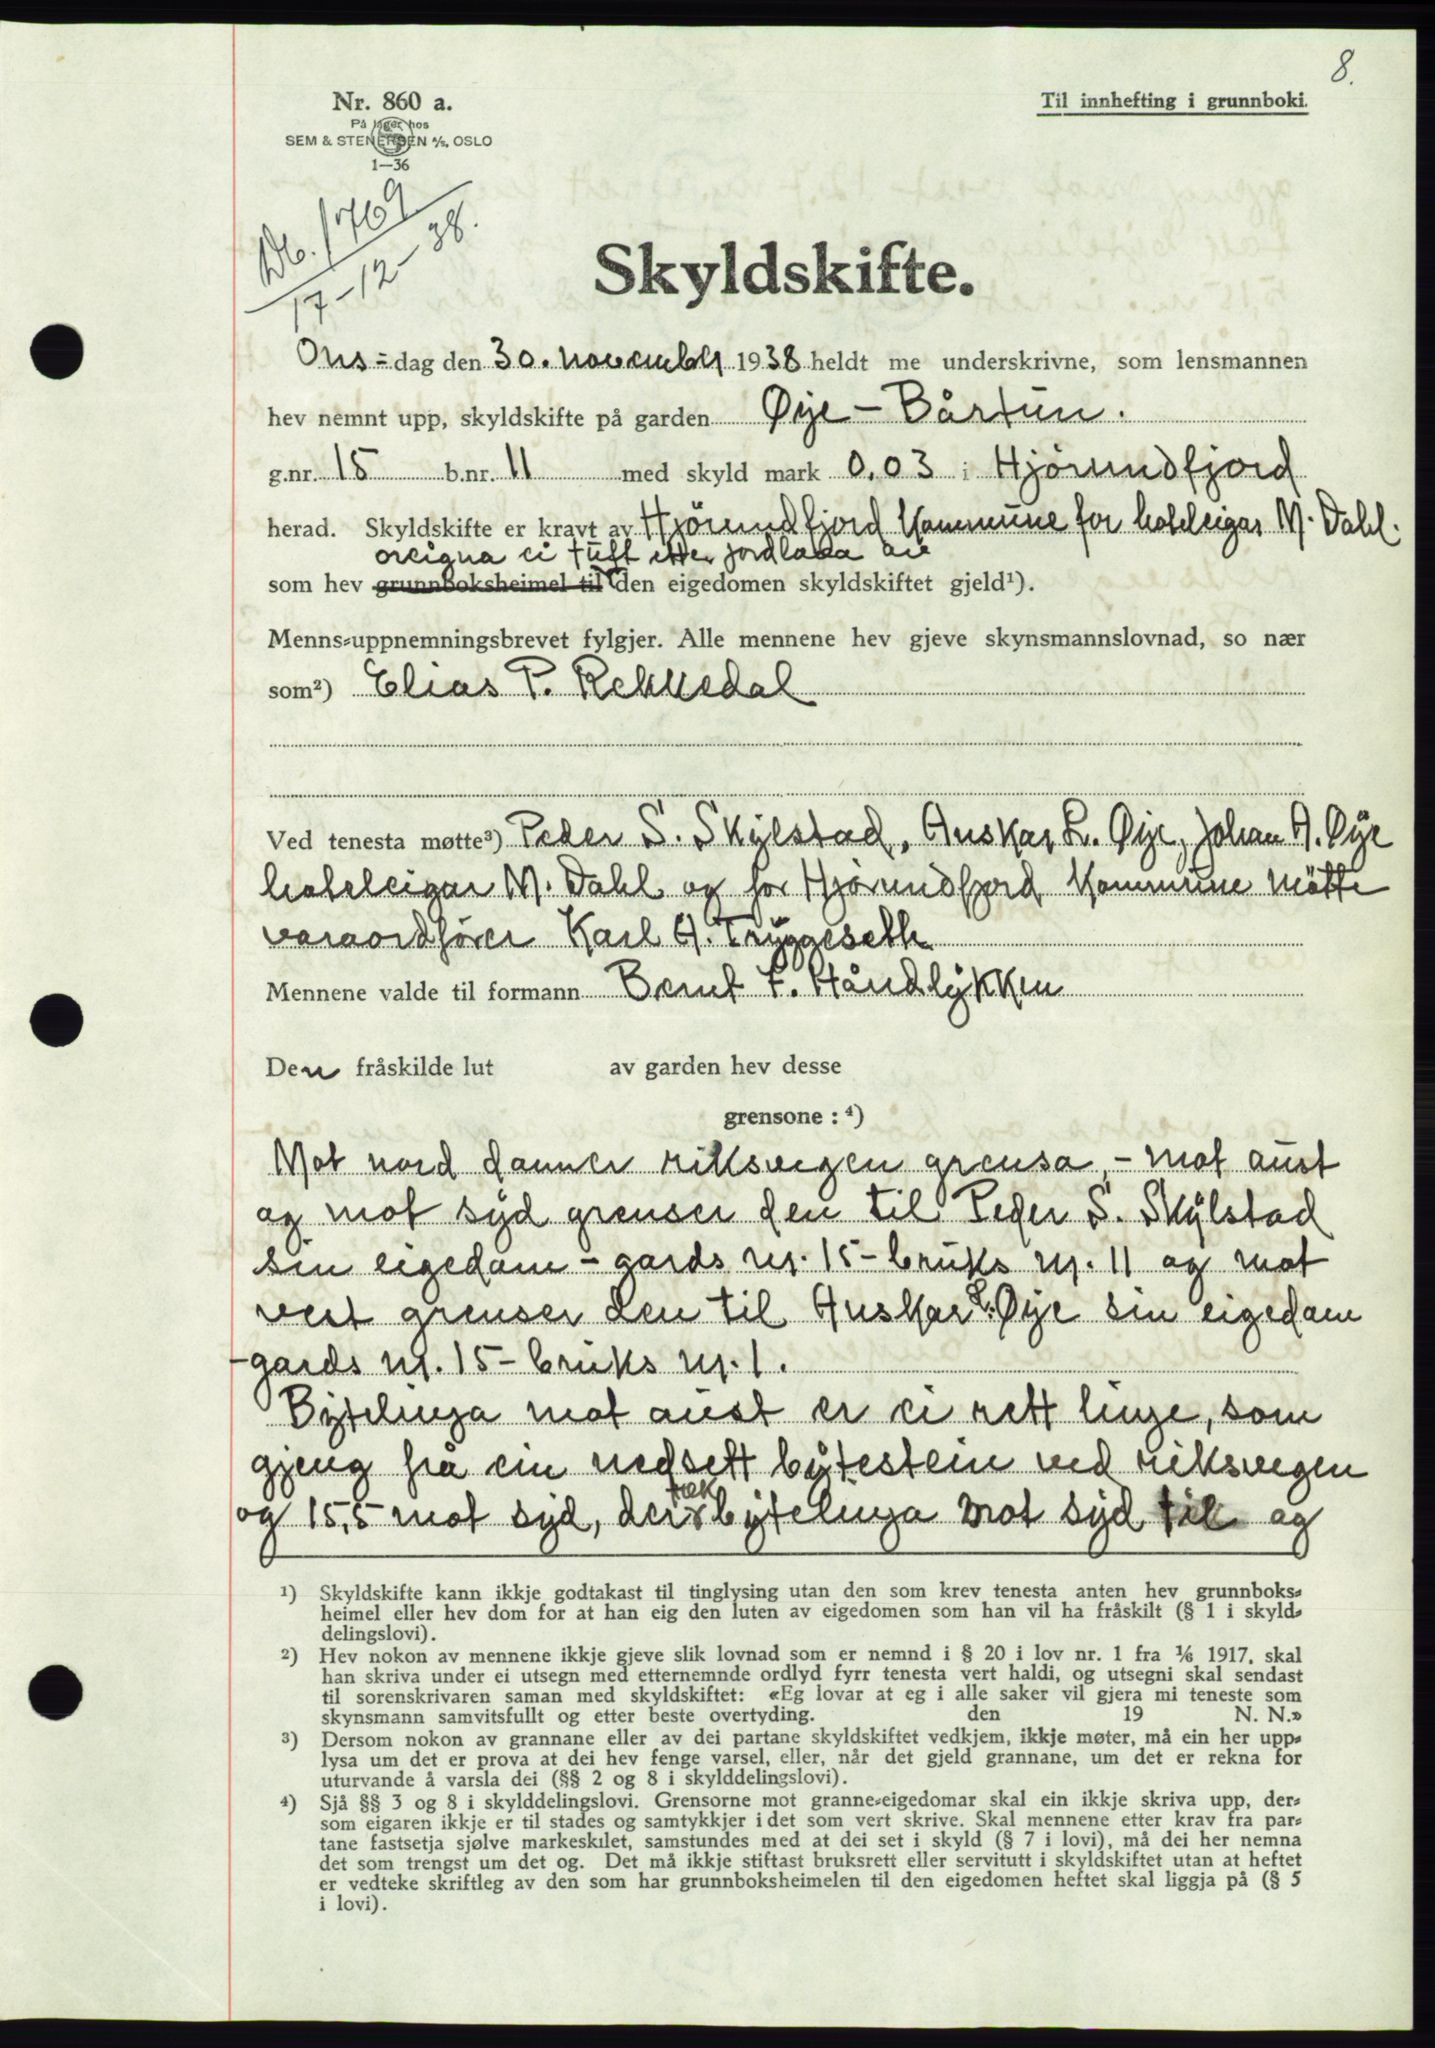 8.
Nr. 860 a.
Til innhefting i grunnboki.
På lager hos
SEM & STENERSEN A/S, OSLO
1—36
Db. 1769
17-12-38.
Skyldskifte.
Ons-dag den 30. november 1938 heldt me underskrivne, som lensmannen
hev nemnt upp, skyldskifte på garden Øye - Bårtun.
g.nr. 15 b.nr. 11 med skyld mark 0,03 i Hjørundfjord
herad. Skyldskifte er kravt av Hjørundfjord Kommune for hoteleigar M. Dahl.
oreigna ei tuft etter jordlova av
som hev grunnboksheimel til den eigedomen skyldskiftet gjeld¹).
Menns-uppnemningsbrevet fylgjer. Alle mennene hev gjeve skynsmannslovnad, so nær
som²) Elias P. Rekkedal
Ved tenesta møtte³) Peder S. Skylstad, Auskar L. Øye, Johan A. Øye
hoteleigar M. Dahl og for Hjørundfjord Kommune møtte
varaordfører Karl A. Tryggeseth
Mennene valde til formann Bernt F. Håndlykken
Den fråskilde lut av garden hev desse
grensone : ⁴)
Mot nord danner riksvegen grensa, - mot aust
og mot syd grenser den til Peder S. Skylstad
sin eigedom - gards nr. 15 - bruks nr. 11 og mot
vest grenser den til Auskar L. Øye sin eigedom
- gards nr. 15 - bruks nr. 1.
Bytelinja mot aust er ei rett linje, som
gjeng frå ein nedsett bytestein ved riksvegen
og 15,5 mot syd, der tek bytelinja mot syd til og
¹) Skyldskifte kann ikkje godtakast til tinglysing utan den som krev tenesta anten hev grunnboks-
heimel eller hev dom for at han eig den luten av eigedomen som han vil ha fråskilt (§ 1 i skyld-
delingslovi).
²) Hev nokon av mennene ikkje gjeve slik lovnad som er nemnd i § 20 i lov nr. 1 fra 1/6 1917, skal
han skriva under ei utsegn med etternemnde ordlyd fyrr tenesta vert haldi, og utsegni skal sendast
til sorenskrivaren saman med skyldskiftet: «Eg lovar at eg i alle saker vil gjera mi teneste som
skynsmann samvitsfullt og etter beste overtyding. den 19 N. N.»
³) Dersom nokon av grannane eller av dei partane skyldskiftet vedkjem, ikkje møter, må ein her upp-
lysa um det er prova at dei hev fenge varsel, eller, når det gjeld grannane, um det er rekna for
uturvande å varsla dei (§§ 2 og 8 i skylddelingslovi).
⁴) Sjå §§ 3 og 8 i skylddelingslovi. Grensorne mot granne-eigedomar skal ein ikkje skriva upp, der-
som eigaren ikkje er til stades og samtykkjer i det som vert skrive. Skal mennene etter krav fra par-
tane fastsetja sjølve markeskilet, samstundes med at dei set i skyld (§ 7 i lovi), må dei her nemna
det som trengst um det og. Det må ikkje stiftast bruksrett eller servitutt i skyldskiftet utan at heftet
er vedteke skriftleg av den som har grunnboksheimelen til den eigedomen heftet skal liggja på (§ 5
i lovi).